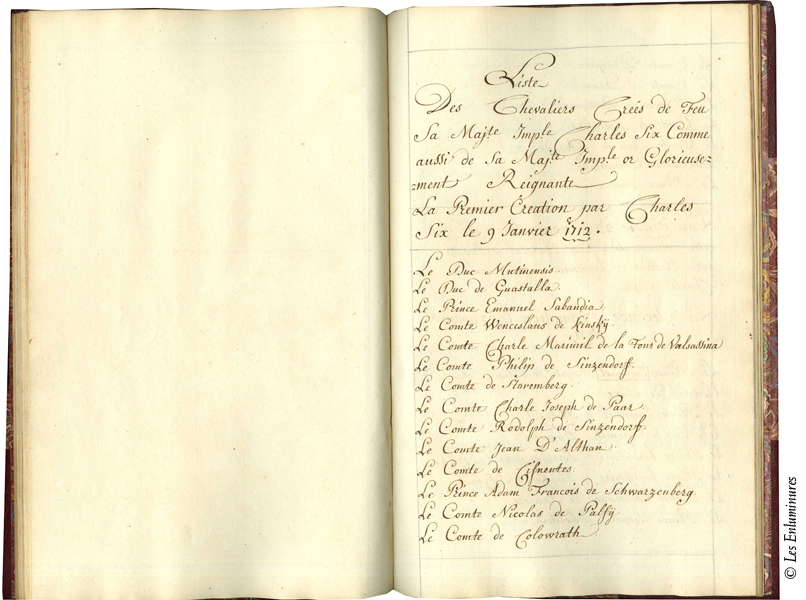 Liste
Des Chevaliers Créés de Feu
Sa Majte Imple Charles Six Comme
aussi de Sa Majte Imple or Glorieuse=
=ment Reignante
La Premier Creation par Charles
Six le 9 Janvier 1712.
Le Duc Mutinensis.
Le Duc de Guastalla.
Le Prince Emanuel Sabandia.
Le Comte Wenceslaus de Kinskÿ.
Le Comte Charle Maximil de la Tour de Valsassina
Le Comte Philip de Sinzendorf.
Le Comte de Staremberg.
Le Comte Charle Joseph de Paar.
Le Comte Rodolph de Sinzendorf.
Le Comte Jean D'Althan.
Le Comte de Cifuentes.
Le Prince Adam Francois de Schwarzenberg.
Le Comte Nicolas de Palfÿ.
Le Comte de Colowrath.
© Les Enluminures